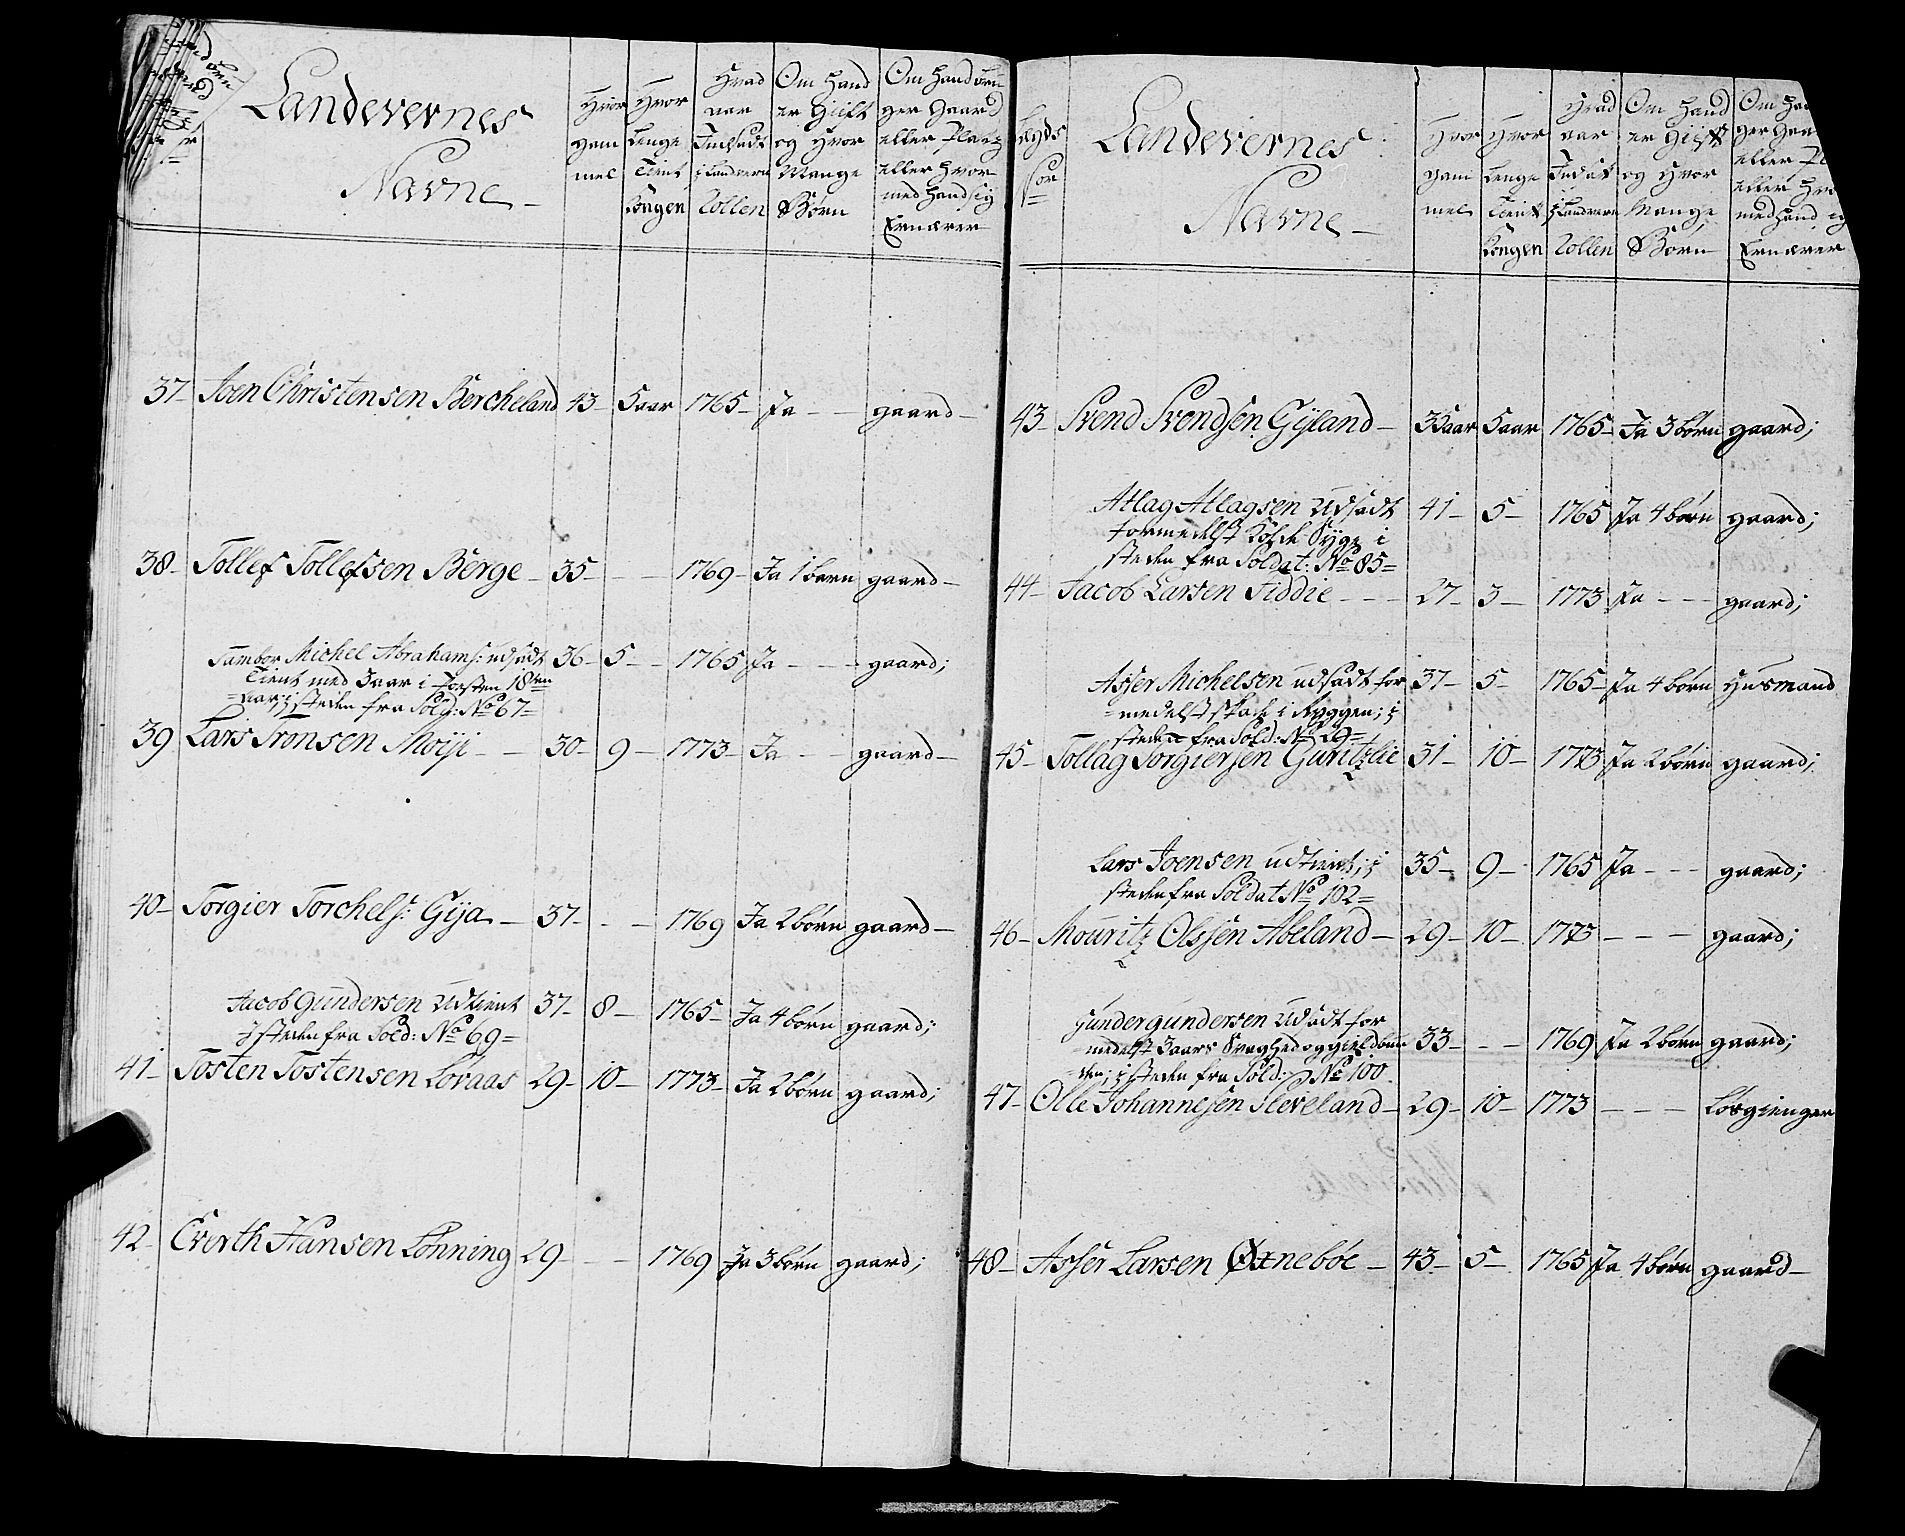 Landevernes
Navne
Hvor gam mel
Hvor Lenge Tient Kongen
Hvad aar Indsadt i Landvern Rollen
Om Hand er Gift og Hvor Mange Børn
Om Hand bru ger Gaard eller Platz eller Hvor med Hand sig Ernærer
37 Joen Christensen Bercheland 43 5 aar 1765 Ja gaard
38 Tollef Tollefsen Berge 35 - 1769 Ja 1 barn gaard
Tambor Michel Abrahams: udsadt 36 5 1765 Ja gaard;
Tient med 3 aar i
aar; i steden fra Sold: No 67
39 Lars Tronsen Moiji 30 9 1773 Ja gaard
40 Torgier Torchels: Gija 37 - 1769 Ja 2 børn gaard
Jacob Gundersen Udtient 37 8 1765 Ja 4 børn gaard;
I steden fra Sold: No 69
41 Tosten Tostensen Lovaas 29 10 1773 Ja 2 børn gaard;
42 Everth Hansen Lønning 29 - 1769 Ja 3 børn gaard;
Landevernes
Navne
Hvor gam mel
Hvor Lenge Tient Kongen
Hvad aar Indsat i Landvern Rollen
Om Hand er Gift og Hvor Mange Børn
Om Ha ger Gaa eller Pl eller Hvo med Hand sig Ernærer
43 Svend Svendsen Gyland 35 aar 5 aar 1765 Ja 3 børn gaard;
Atlag Atlagsen Udsadt 41 5 1765 Ja 4 børn gaard;
formedelst Kolde Syge i
steden fra Soldat: No 85
44 Jacob Larsen Fiddie 27 3 1773 Ja gaard;
Asser Michelsen udsadt for 37 5 1765 Ja 4 børn Husmand
medelst skade i Ryggen; i
steden fra Sold: No 29
45 Tollag Torgiersen Guritzlie 31 10 1773 Ja 2 børn gaard;
Lars Joensen udtient; i 35 9 1765 Ja gaard;
steden fra Soldat No 102
46 Mouritz Olssen Abeland 29 10 1773 - gaard;
Gunder gundersen Udsadt for 33 - 1769 Ja 2 børn gaard;
medelst 3 aars Svaghed og
i steden fra Sold: No 100
47 Olle Johannesen Sleveland 29 10 1773 - Løsgienger
48 Asser Larsen Øxnebøe 43 5 1765 Ja 4 børn gaard